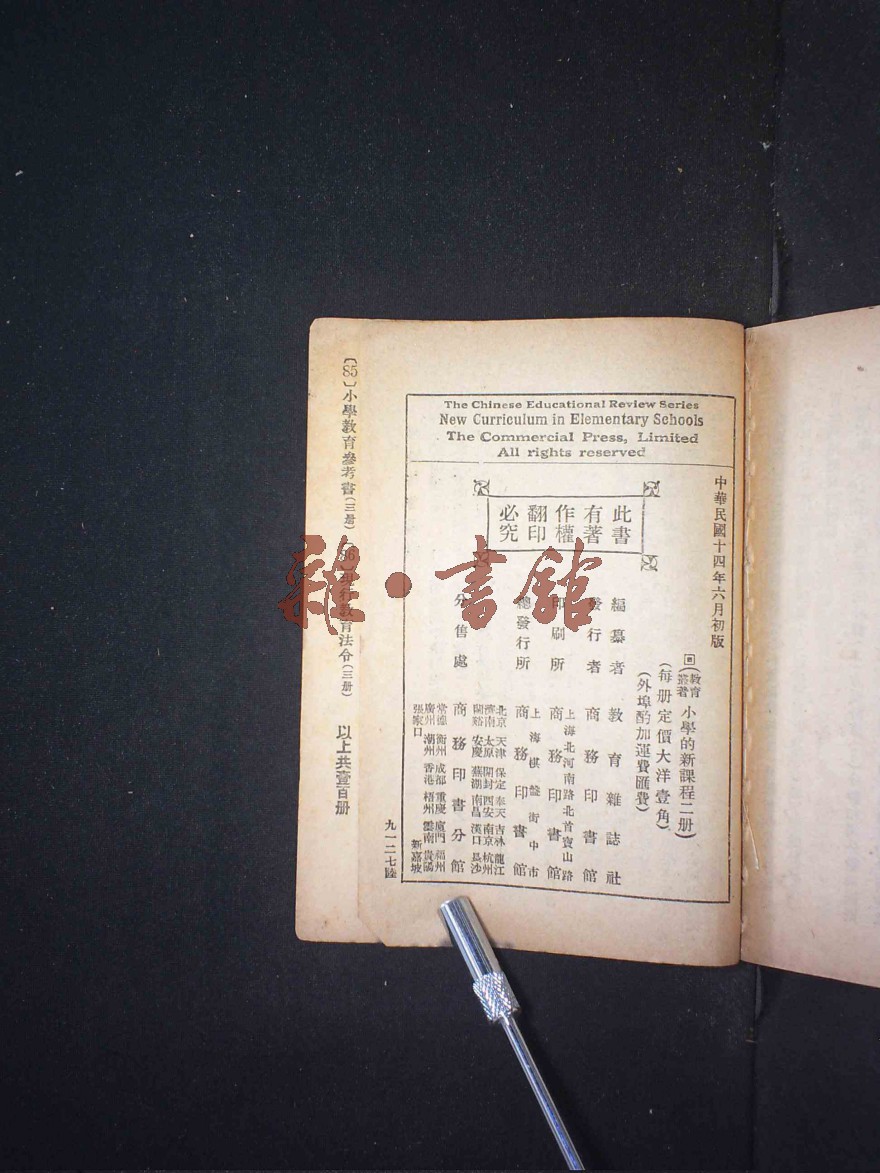 The Chinese Educational Review Series
New Curriculum in Elementary Schools
The Commercial Press, Limited
All rights reserved
中華民國十四年六月初版
(教育叢著小學的新課程二册)
(每册定價大洋壹角)
(外埠酌加運費匯費)
此書
有著
作權
翻印
必究
編纂者 教育雜誌社
發行者 商務印書館
上海北河南路北首寶山路
印刷所 商務印書館
上海棋盤街中市
總發行所 商務印書館
分售處 商務印書分館
北京 天津 保定 奉天 吉林 龍江
濟南 太原 開封 西安 南京 杭州
蘭谿 安慶 蕪湖 南昌 漢口 長沙
常德 衡州 成都 重慶 廈門 福州
廣州 潮州 香港 梧州 雲南 貴陽
張家口 新嘉坡
九一二七陸
〔85〕小學教育參考書(三册) 〔86〕現行教育法令(三册) 以上共壹百册
雜·書館